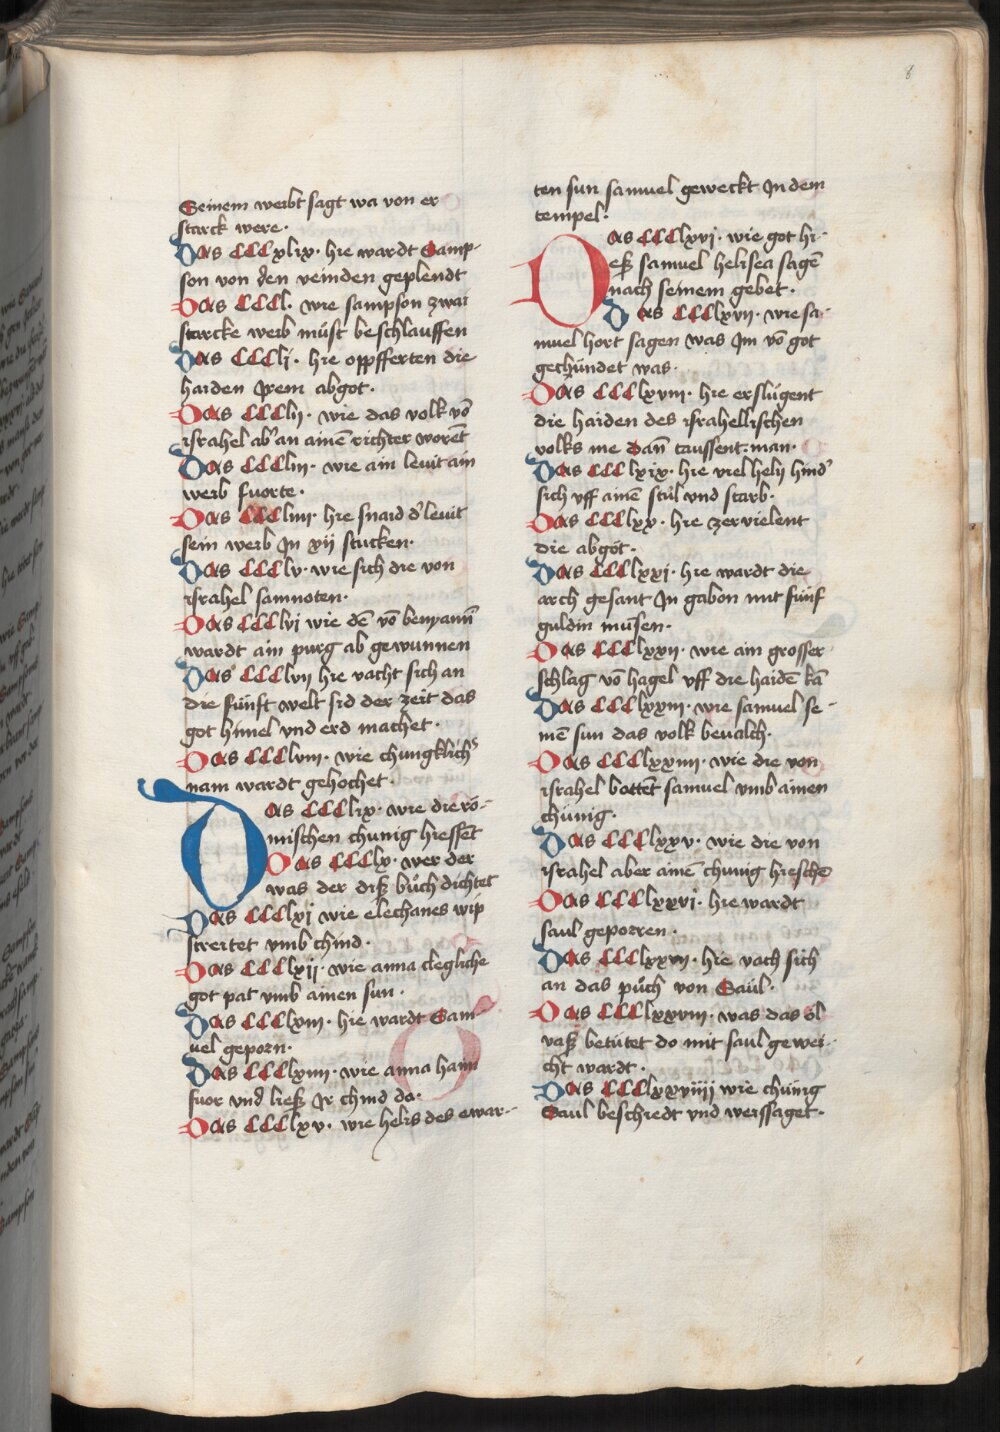 8
Seinem weibt sagt wa von er
starck were·
Das CCCxlix· hie wardt Samp-
son von den veinden geplendt
Das CCCl· wie sampson zwai
starcke weib müst beschlauffen
Das CCClj· hie oppfferten die
haiden Jrem abgot·
Das CCClij· wie das volk vō
israhel ab' an ainē richter worēt
Das CCCliij· wie ain leuit ain
weib fuorte·
Das CCCliiij· hie snaid d' leuit
sein weib Jn xij stucken·
Das CCClv· wie sich die von
israhel samnoten·
Das CCClvj wie dē vō benyamī
wardt ain purg ab gewunnen
Das CCClvij hie vacht sich an
die fünft welt sid der zeit das
got himel vnd erd machet·
Das CCClviij· wie chungklich'
nam wardt gehöchet·
Das CCClix· wie die rö-
mischen chunig hiesset
Das CCClx· wer der
was der disz bůch dichtet
Das CCClxj wie elechanes wip
streitet vmb chind·
Das CCClxij· wie anna clegliche
got pat vmb ainen sun·
Das CCClxiij· hie wardt Sam-
uel geporn·
Das CCClxiiij· wie anna haim
fuor vnd liesz Jr chind da·
Das CCClxv· wie helis des ewar-
ten sun samuel geweckt Jn dem
tempel·
Das CCClxvj· wie got hi-
esz samuel helisea sagē
nach seinem gebet·
Das CCClxvij· wie sa-
muel hort sagen was Jm vō got
gechündet was·
Das CCClxviij· hie erslügent
die haiden des israhellischen
volks me dañ taussent· man·
Das CCClxix· hie viel helij hind'
sich vff ainē stůl vnd starb·
Das CCClxx· hie zervielent
die abgöt·
Das CCClxxj· hie wardt die
arch gesant Jn gabon mit fünf
guldin müsen·
Das CCClxxij· wie ain grosser
schlag vō hagel vff die haidē kā
Das CCClxxiij· wie samuel se-
inē sun das volk beualch·
Das CCClxxiiij· wie die von
israhel bottēt samuel vmb ainen
chünig·
Das CCClxxv· wie die von
israhel aber ainē chunig hieschē
Das CCClxxvj· hie wardt
saul geporren·
Das CCClxxvij· hie vach sich
an das půch von Saul·
Das CCClxxviij· was das öl
vasz betütet do mit saul gewei-
cht wardt·
Das CCClxxviiij wie chünig
Saul beschiedt vnd weissaget·